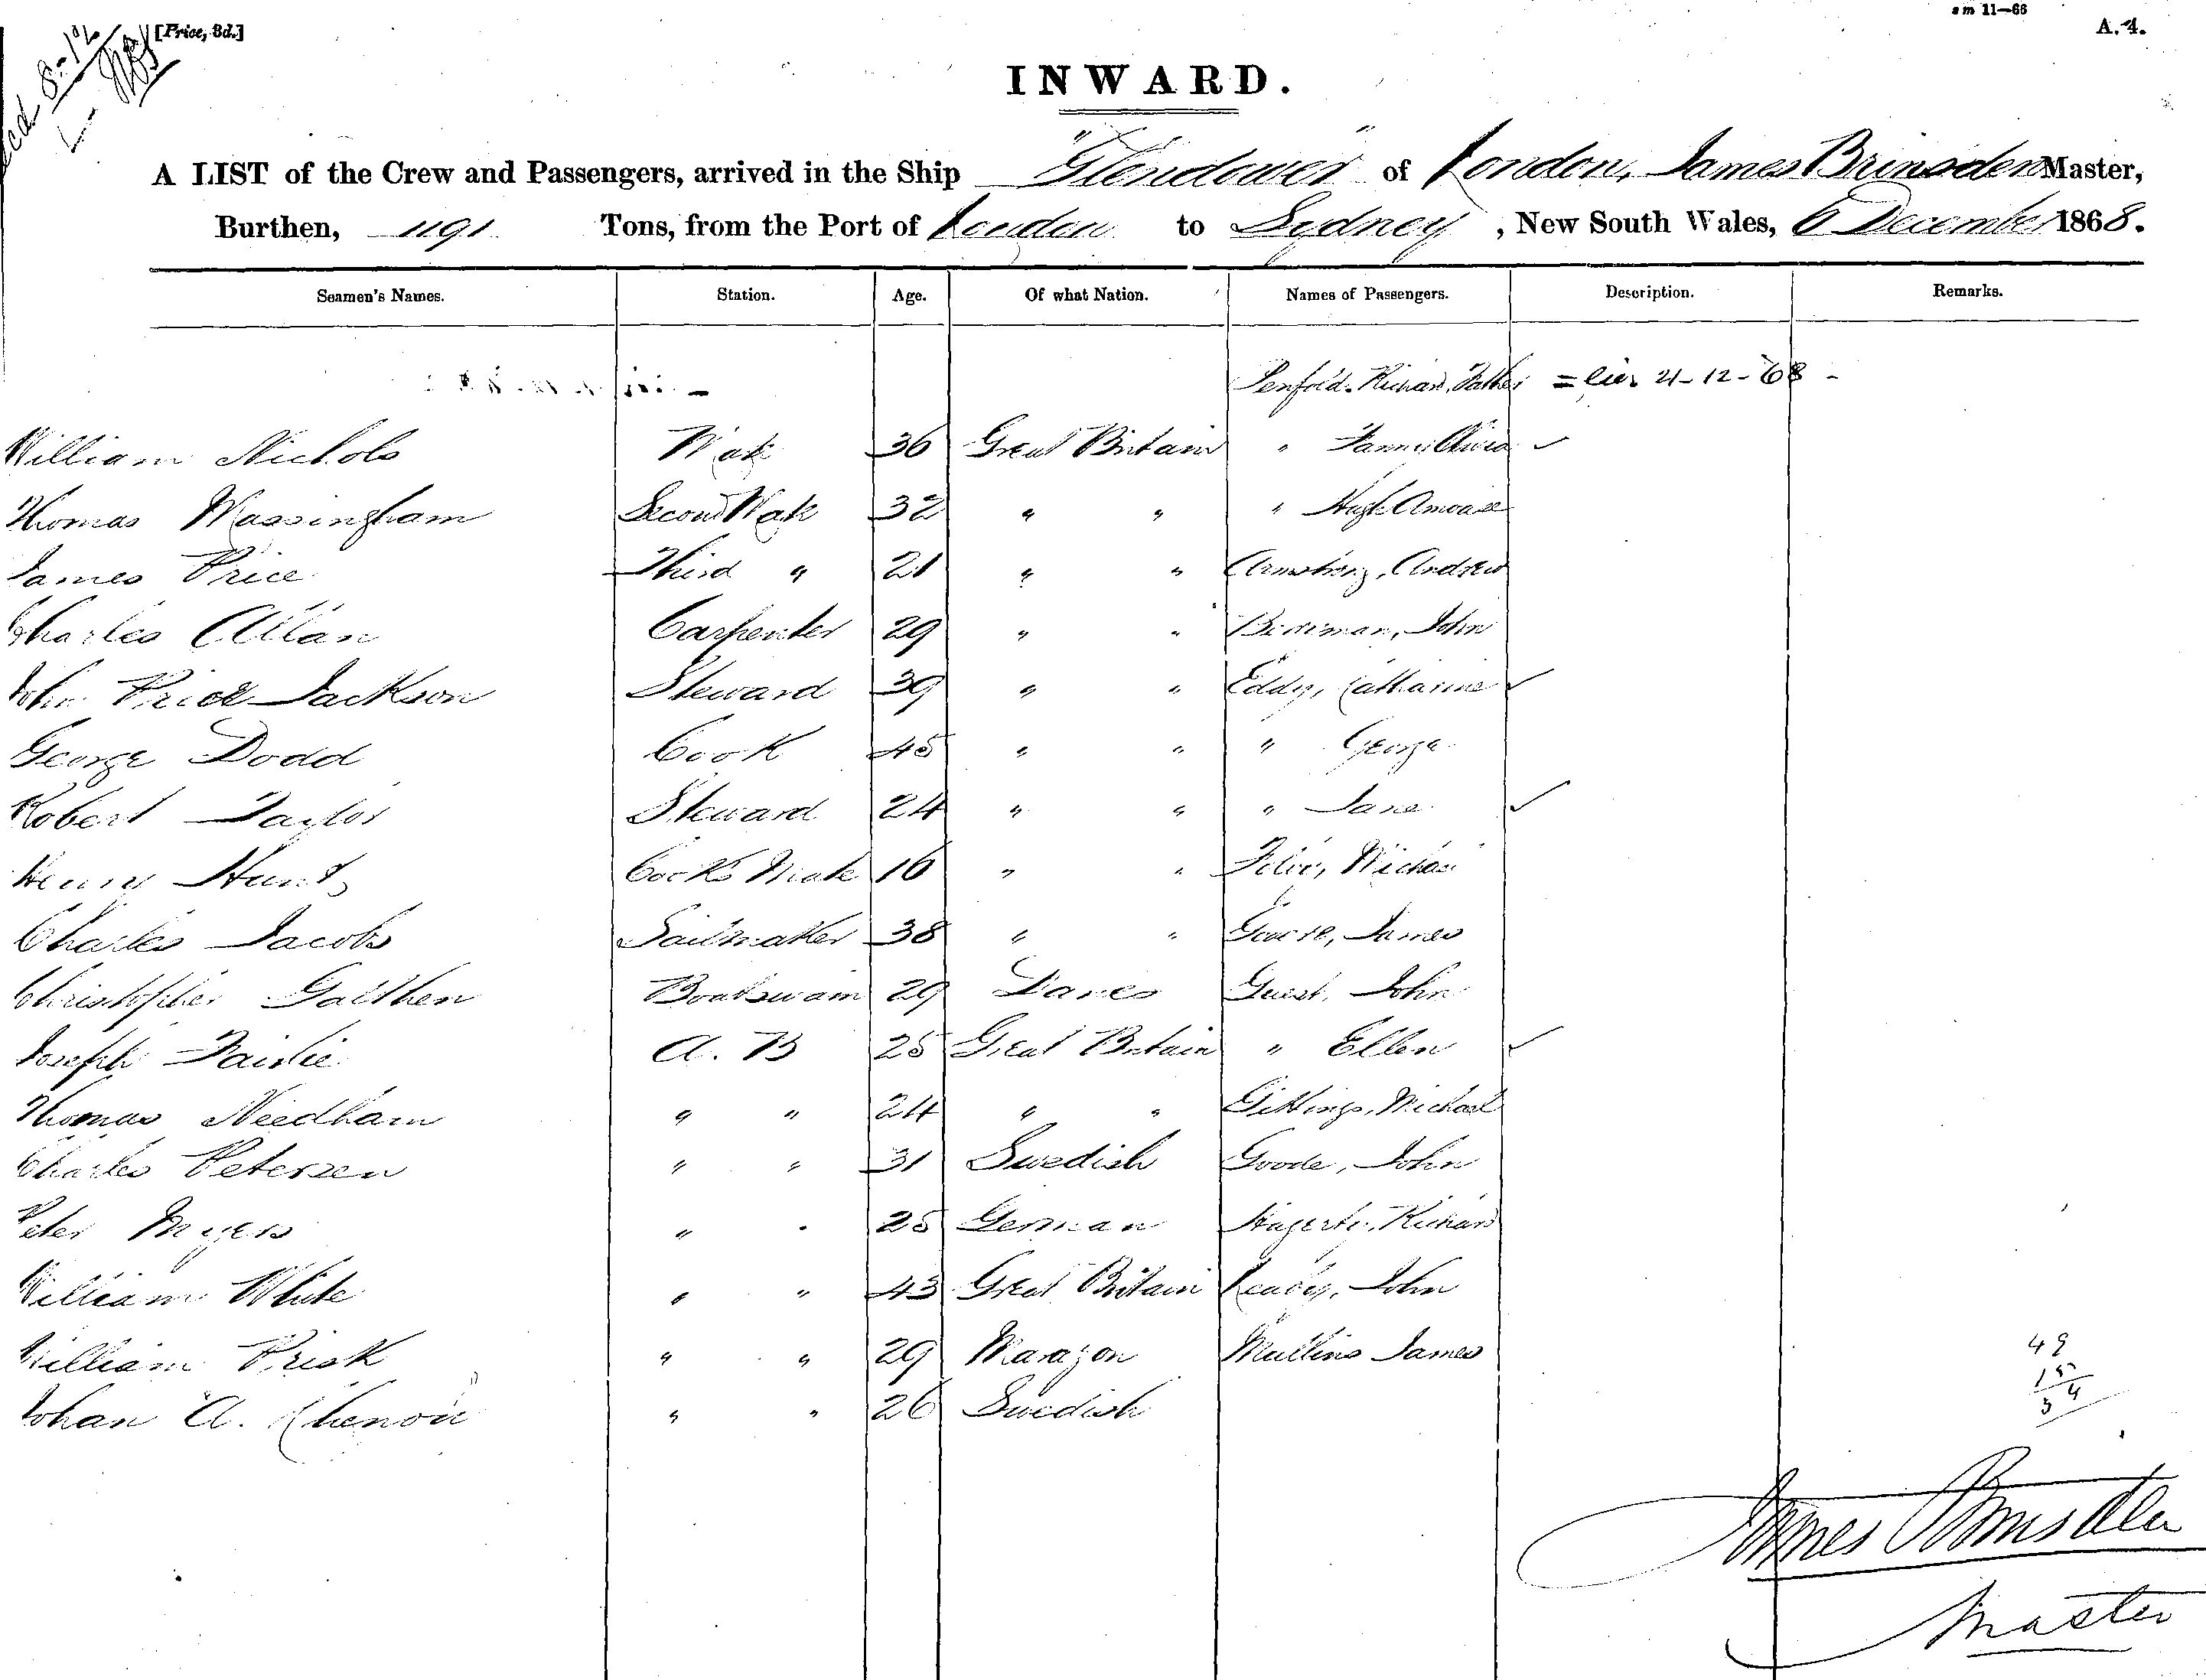 [Price, 8d.]
A. 4.
INWARD.
A LIST of the Crew and Passengers, arrived in the Ship "Glendower" of London, James Brinsden Master,
Burthen, 1191 Tons, from the Port of London to Sydney, New South Wales, 6 December 1868.
Seamen's Names. Station. Age. Of what Nation. Names of Passengers. Description. Remarks.
Penfold 21-12-68 -
William Nichols Mate 36 Great Britain "
Thomas Massingham Second Mate 32 " " " Hugh
James Price Third " 21 " " Armstrong, Andrew
Charles Allan Carpenter 29 " " John
John Price Jackson Steward 39 " " Eddy, Catharine ✓
George Dodd Cook 45 " " " George
Robert Taylor Steward 24 " " " Jane ✓
Henry Hunt Cooks Mate 16 " "
Charles Jacobs Sailmaker 38 " " James
Christopher Boatswain 29 Danes Guest, John
Joseph A. B 25 Great Britain " Ellen ✓
Thomas Needham " " 24 " " Gittings, Michael
Charles Petersen " " 31 Swedish Goode, John
Peter Myers " " 25 German
William White " " 43 Great Britain John
William Prisk " " 29 Marazon Mullins James
Johan A. " " 26 Swedish
49
15
54
James Brinsden
Master